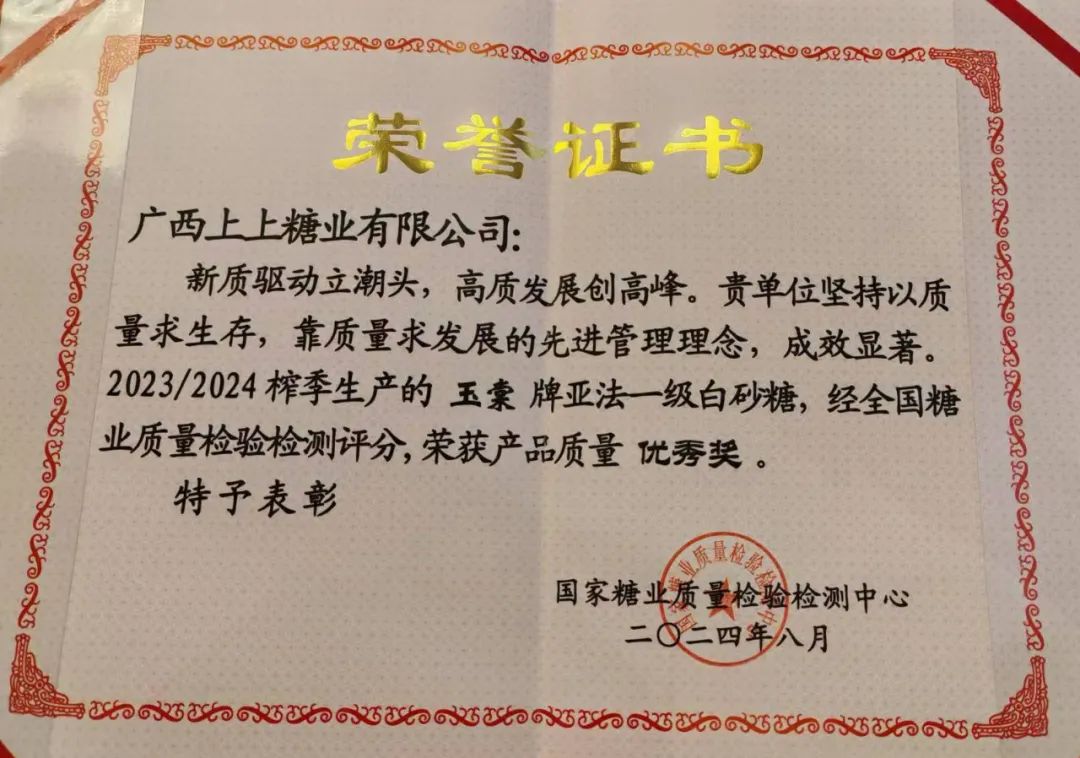 荣誉证书
广西上上糖业有限公司:
新质驱动立潮头，高质发展创高峰。贵单位坚持以质
量求生存，靠质量求发展的先进管理理念，成效显著。
2023/2024 榨季生产的 玉棠 牌亚法一级白砂糖，经全国糖
业质量检验检测评分,荣获产品质量 优秀奖 。
特予表彰
国家糖业质量检验检测中心
国家糖业质量检验检测中心
二〇二四年八月